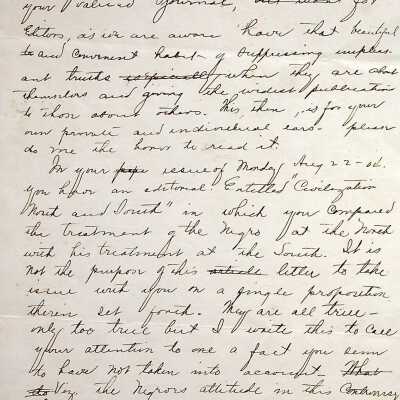 your valued Journal, for
Editors, as we are aware have that beautiful
to and convenient habit of suppressing unpleas-
ant truths especially, when they are about
themselves and giving the widest publication
to those about others. This, then, is for your
own private and individual ears - please
do me the honor to read it.
In your paper issue of Monday Aug 22 -
you have an editorial Entitled "Civilization
North and South" in which you Compared
the treatment of the Negro at the North
with his treatment at the South. It is
not the purpose of this article letter to take
issue with you on a single proposition
therein set forth. They are all true -
only too true but I write this to Call
your attention to one a fact you seem
to have not taken into account. What
Viz. the Negros attitude in this Controversy